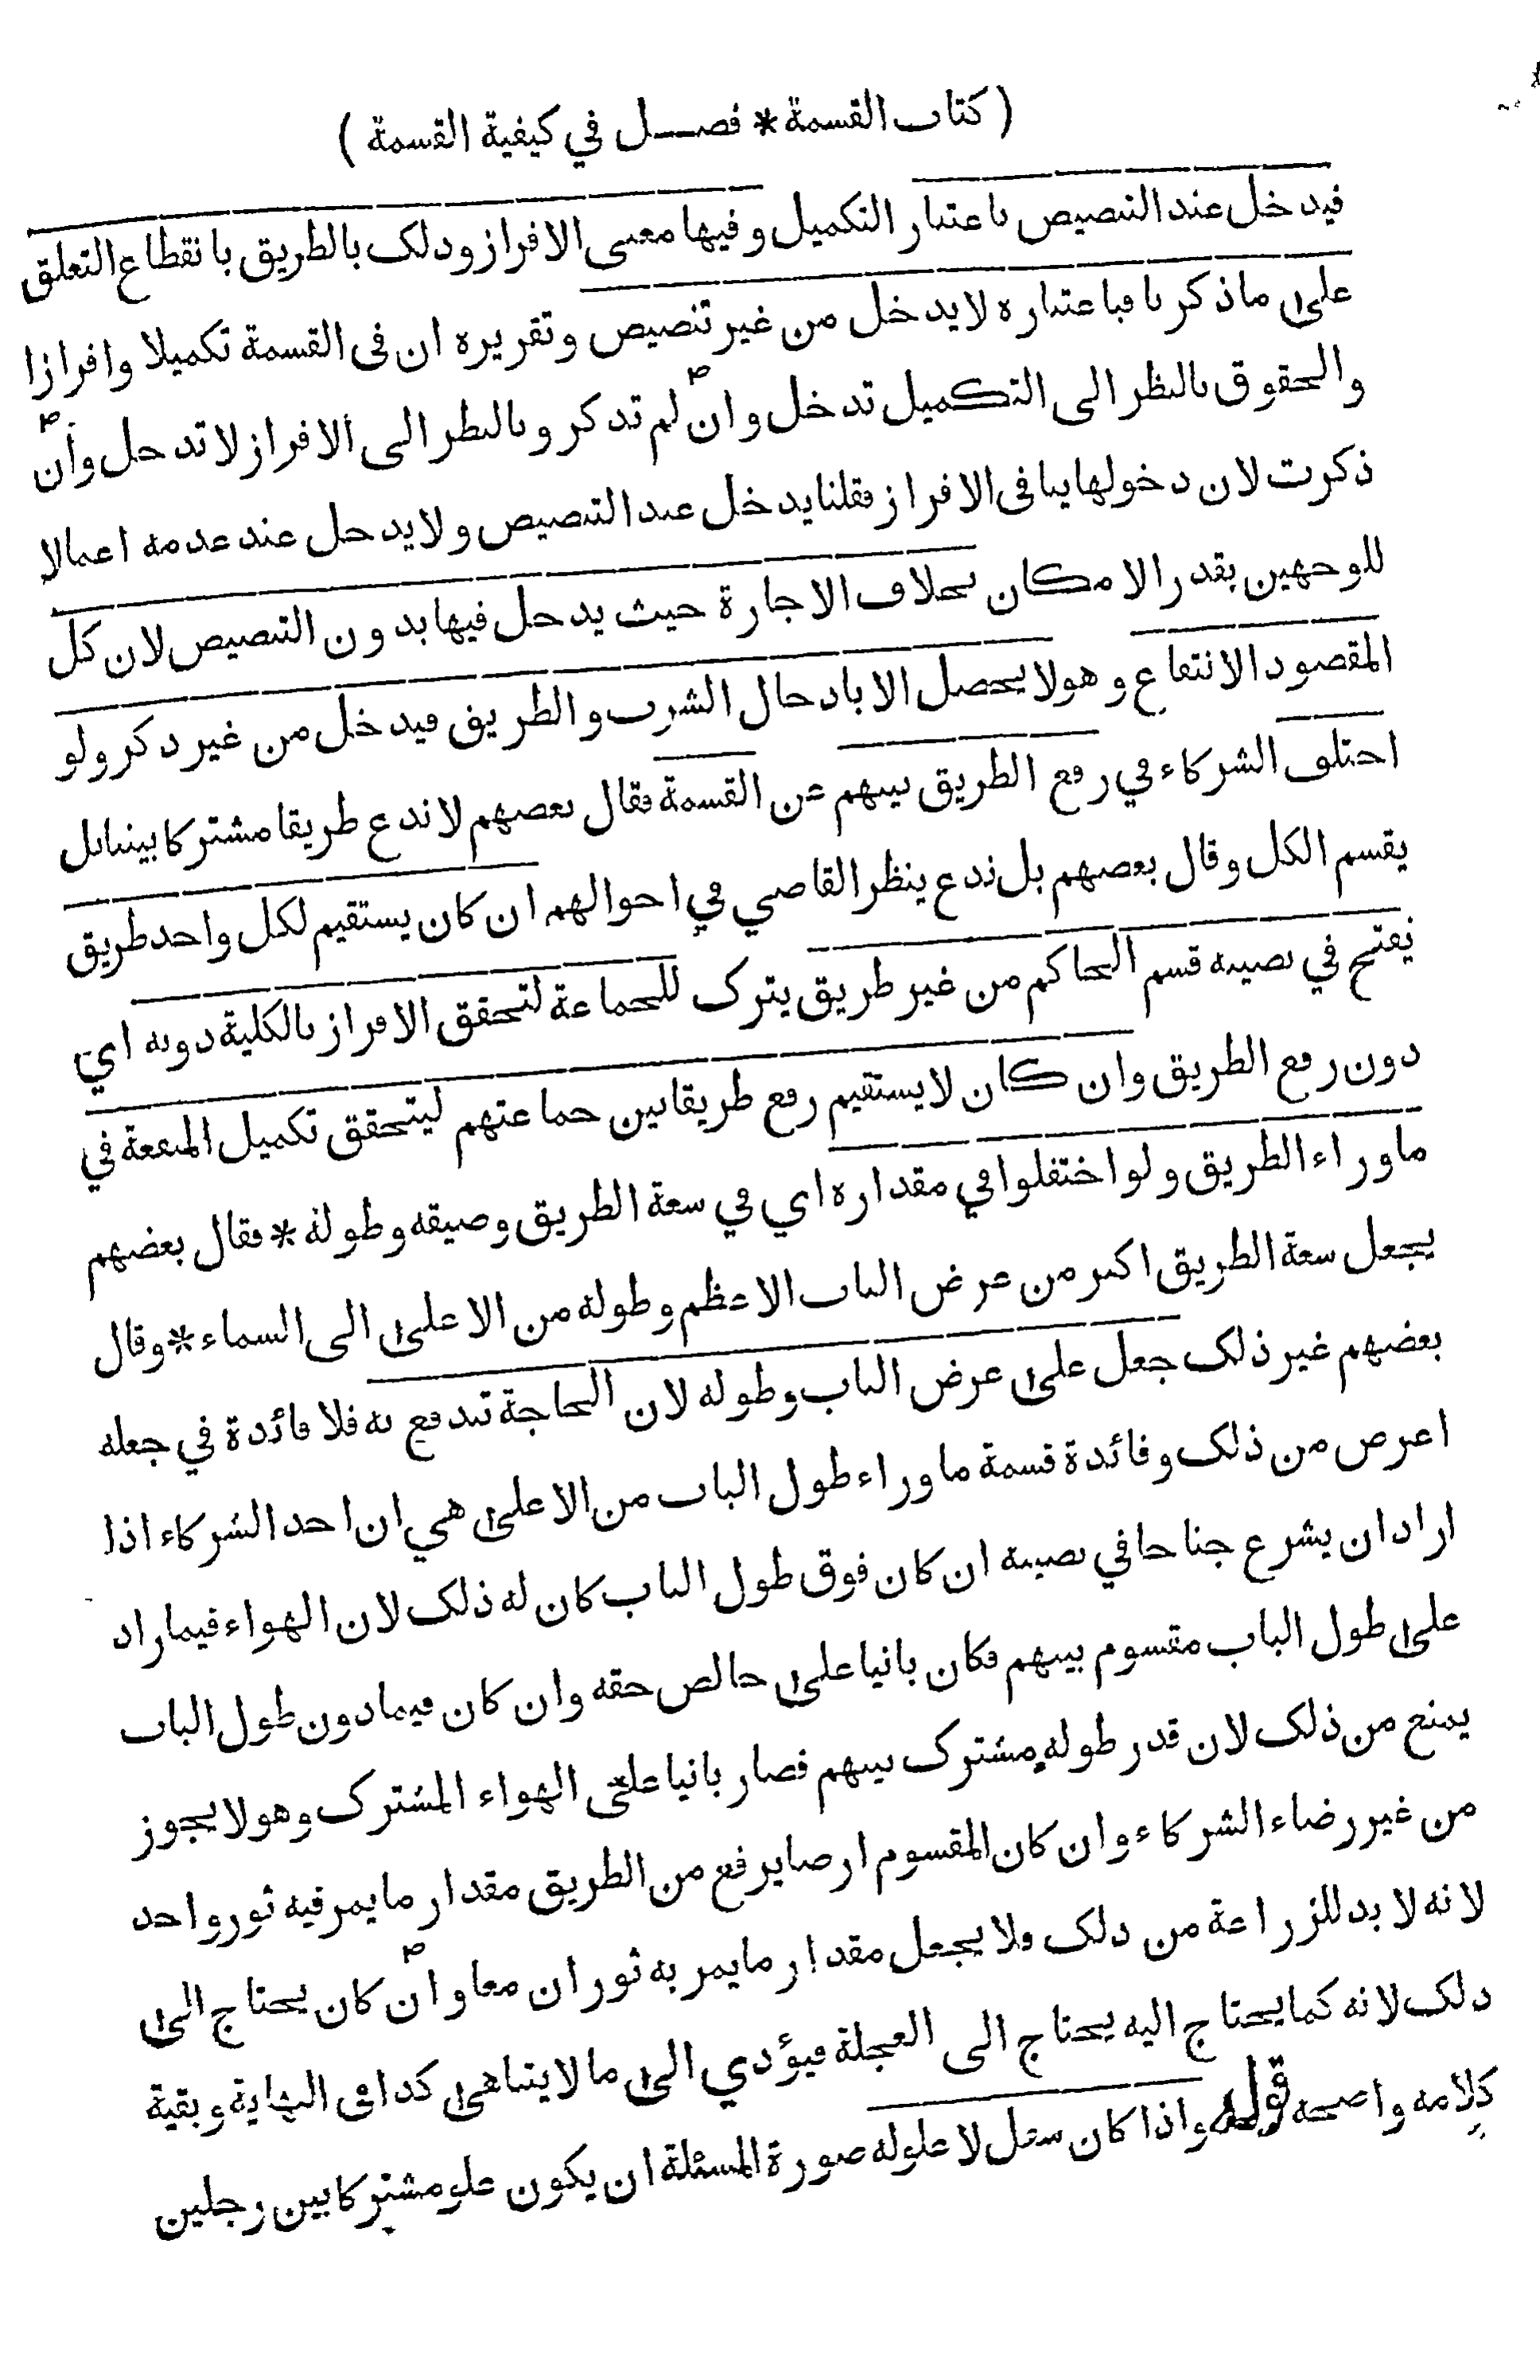 ( كتاب القسمة * فصـــل في كيفية القسمة )
فيدخل عند التنصيص باعتبار التكميل وفيها معنى الافراز وذلك بالطريق بانقطاع التعلق
على ما ذكرنا فباعتباره لا يدخل من غير تنصيص وتقريره ان في القسمة تكميلا وافرازا
والحقوق بالنظر الى التكميل تدخل وان لم تذكر وبالنظر الى الافراز لا تدخل وان
ذكرت لان دخولها ينافي الافراز فقلنا يدخل عند التنصيص ولا يدخل عند عدمه اعمالا
للوجهين بقدر الامكان بخلاف الاجارة حيث يدخل فيها بدون التنصيص لان كل
المقصود الانتفاع وهو لا يحصل الا بادخال الشرب والطريق فيدخل من غير ذكر ولو
اختلف الشركاء في رفع الطريق بينهم عن القسمة فقال بعضهم لا ندع طريقا مشتركا بيننا بل
يقسم الكل وقال بعضهم بل ندع ينظر القاضي في احوالهم ان كان يستقيم لكل واحد طريق
يفتح في نصيبه قسم الحاكم من غير طريق يترك للجماعة لتحقق الافراز بالكلية دونه اي
دون رفع الطريق وان كان لا يستقيم رفع طريقا بين جماعتهم ليتحقق تكميل المنفعة في
ما وراء الطريق ولو اختفلوا في مقداره اي في سعة الطريق وضيقه وطوله * فقال بعضهم
يجعل سعة الطريق اكبر من عرض الباب الاعظم وطوله من الاعلى الى السماء * وقال
بعضهم غير ذلك جعل على عرض الباب وطوله لان الحاجة تندفع به فلا فائدة في جعله
اعرض من ذلك وفائدة قسمة ما وراء طول الباب من الاعلى هي ان احد الشركاء اذا
اراد ان يشرع جناحا في نصيبه ان كان فوق طول الباب كان له ذلك لان الهواء فيما زاد
على طول الباب مقسوم بينهم فكان بانيا على خالص حقه وان كان فيما دون طول الباب
يمنع من ذلك لان قدر طوله مشترك بينهم فصار بانيا على الهواء المشترك وهو لا يجوز
من غير رضاء الشركاء وان كان المقسوم ارضا يرفع من الطريق مقدار ما يمر فيه ثور واحد
لانه لا بد للزراعة من ذلك ولا يجعل مقدار ما يمر به ثوران معا وان كان يحتاج الى
ذلك لانه كما يحتاج اليه يحتاج الى العجلة فيؤدي الى ما لا يتناهى كذا في النهاية وبقية
كلامه واضحة قوله واذا كان سفل لا علو له صورة المسئلة ان يكون علو مشتركا بين رجلين